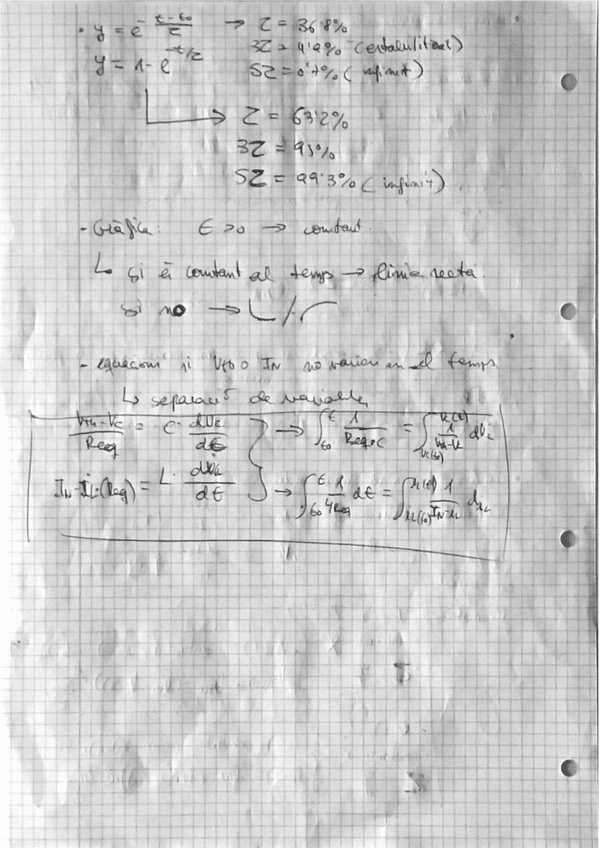 • y = e^-(t-to)/τ → τ = 36'8%
3τ = 4'9% (estabilitzat)
y = 1 - e^-t/τ
5τ = 0'7% (infinit)
→ τ = 63'2%
3τ = 95%
5τ = 99'3% (infinit)
- Gràfica: t > 0 → constant
↳ si és constant al temps → línia recta.
si no →
- equacions si Vth o IN no varien en el temps
↳ separació de variables
(Vth - Vc)/Req = C · dVc/dt → ∫_to^t 1/(Req·C) = ∫_Vc(to)^Vc(t) 1/(Vth-Vc) dVc
IN - iL · (Req) = L · diL/dt → ∫_to^t 1/(L/Req) dt = ∫_iL(to)^iL(t) 1/(IN-iL) diL